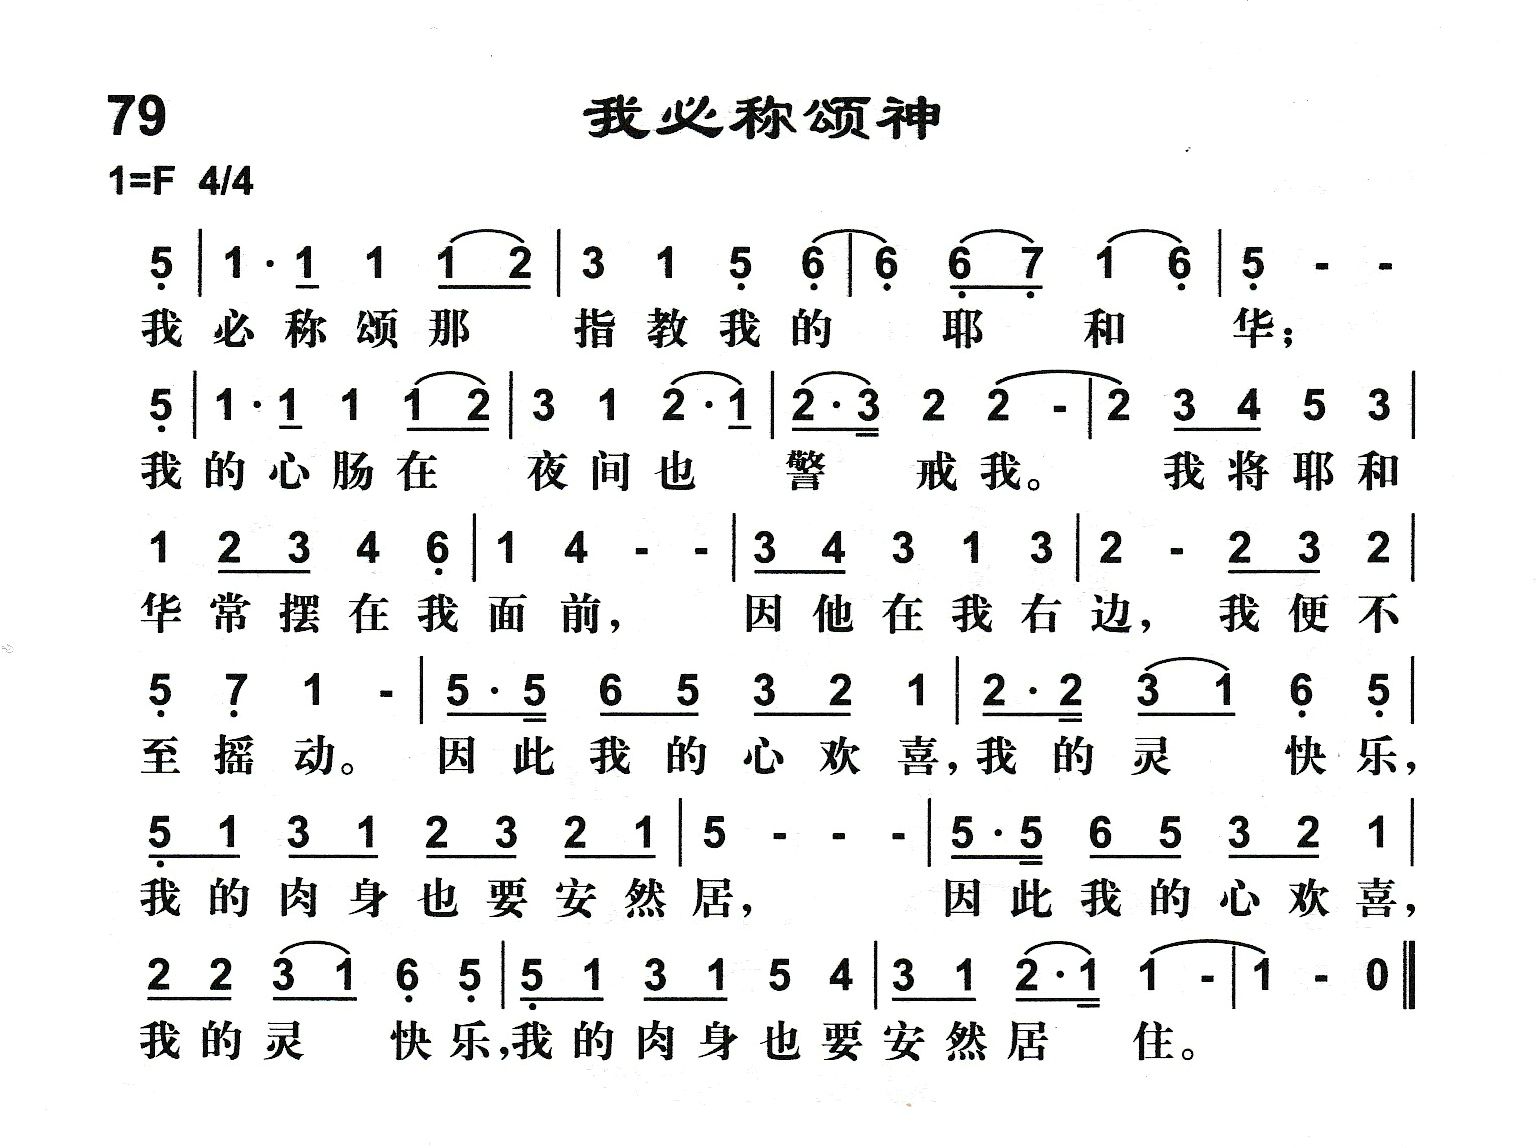 79 我必称颂神
1=F 4/4
5 | 1 · 1 1 1 2 | 3 1 5 6 | 6 6 7 1 6 | 5 - -
我必称颂那 指教我的 耶 和 华；
5 | 1 · 1 1 1 2 | 3 1 2 · 1 | 2 · 3 2 2 - | 2 3 4 5 3 |
我的心肠在 夜间也 警 戒我。 我将耶和
1 2 3 4 6 | 1 4 - - | 3 4 3 1 3 | 2 - 2 3 2 |
华常摆在我面前， 因他在我右边， 我便不
5 7 1 - | 5 · 5 6 5 3 2 1 | 2 · 2 3 1 6 5 |
至摇动。 因此我的心欢喜，我的灵 快乐，
5 1 3 1 2 3 2 1 | 5 - - - | 5 · 5 6 5 3 2 1 |
我的肉身也要安然居， 因此我的心欢喜，
2 2 3 1 6 5 | 5 1 3 1 5 4 | 3 1 2 · 1 1 - | 1 - 0 ‖
我的灵 快乐，我的肉身也要安然居 住。